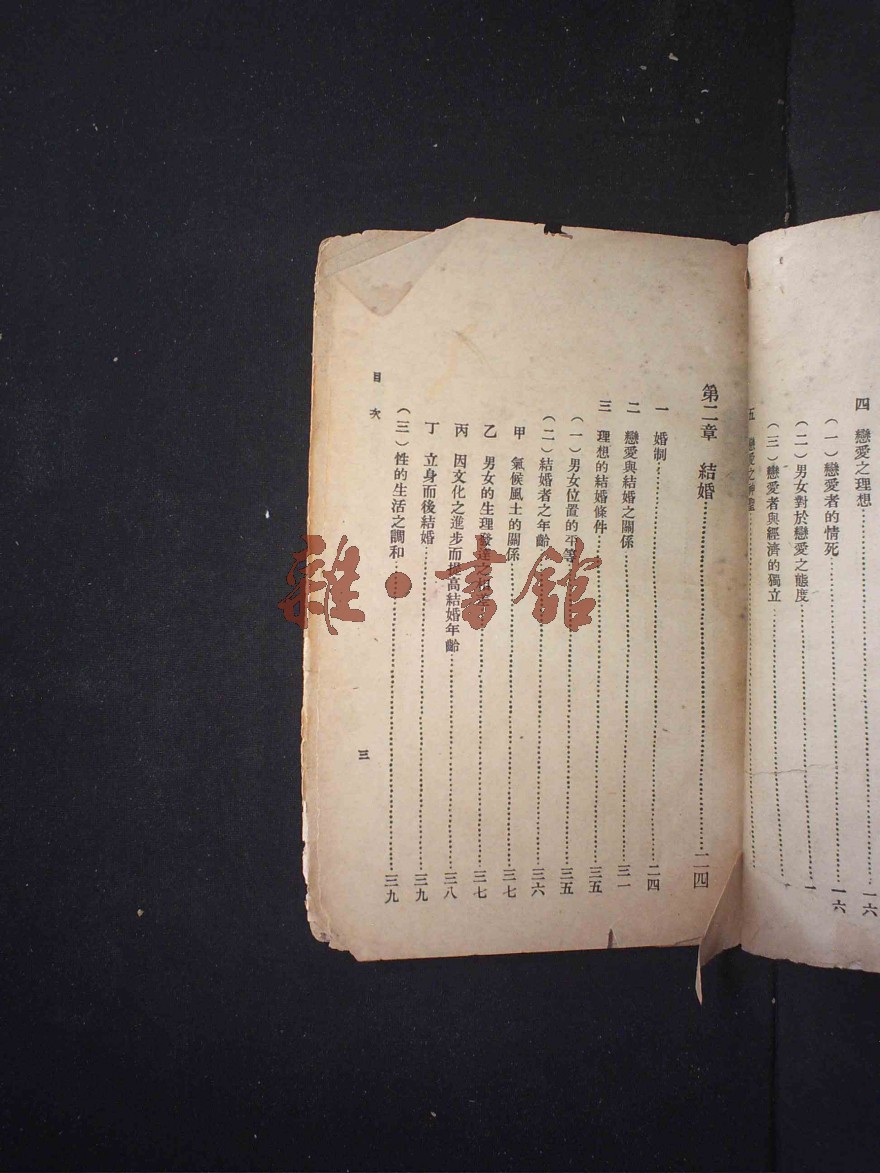 四　戀愛之理想……一六
（一）戀愛者的情死……一六
（二）男女對於戀愛之態度……一
（三）戀愛者與經濟的獨立……
五　戀愛之神聖……
第二章　結婚……二四
一　婚制……二四
二　戀愛與結婚之關係……三一
三　理想的結婚條件……三五
（一）男女位置的平等……三五
（二）結婚者之年齡……三六
甲　氣候風土的關係……三七
乙　男女的生理發達之相差……三七
丙　因文化之進步而提高結婚年齡……三八
丁　立身而後結婚……三九
（三）性的生活之調和……三九
目次
三
雜·書館